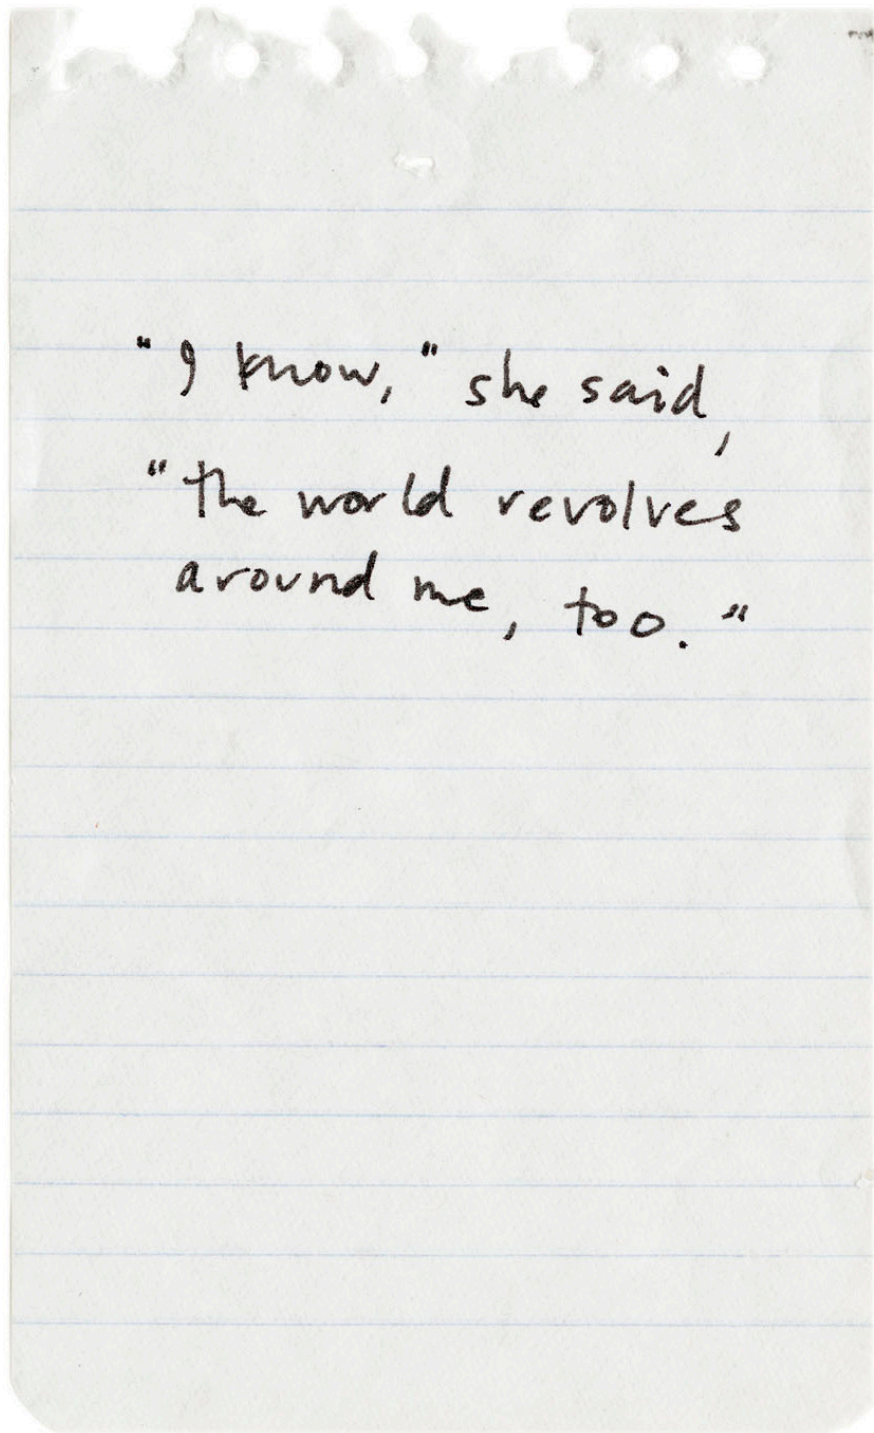 "I know," she said,
"the world revolves
around me, too."